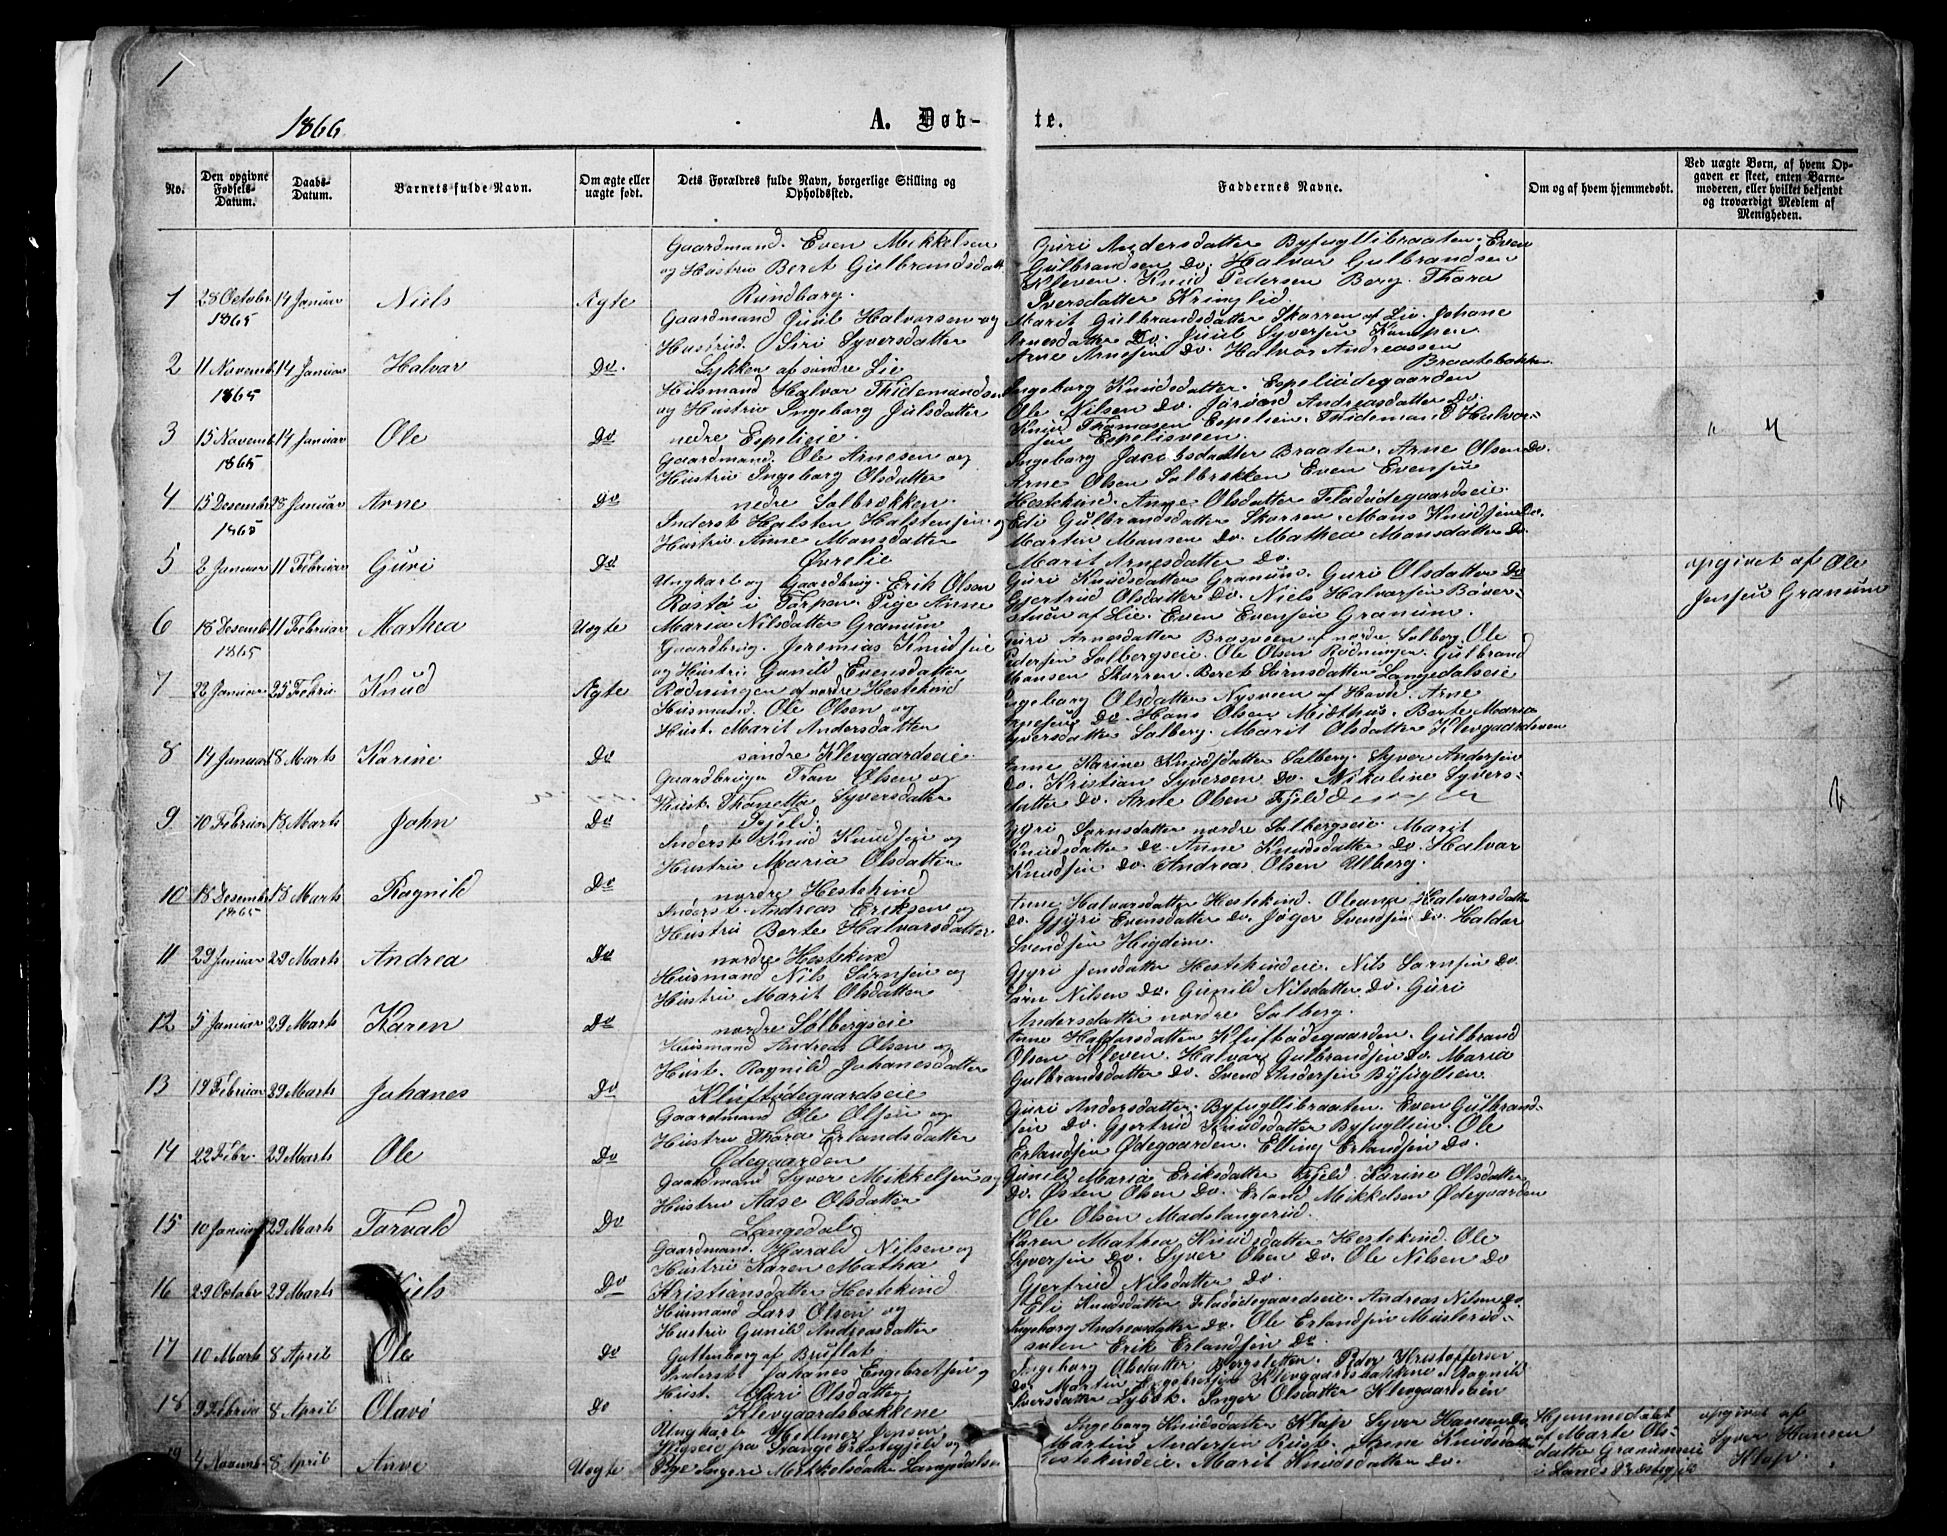 1
1866
A. Døb-
te.
No.
Den opgivne Fødsels-Datum.
Daabs-Datum.
Barnets fulde Navn.
Om ægte eller uægte født.
Dets Forældres fulde Navn, borgerlige Stilling og Opholdssted.
Faddernes Navne.
Om og af hvem hjemmedøbt.
Ved uægte Børn, af hvem Op-
gaven er skeet, enten Barne-
moderen, eller hvilket bekjendt
og troværdigt Medlem af
Menigheden.
1 28 Octobr 1865 14 Januar Niels Ægte
Gaardmand. Even Mikkelsen
og Hustru Beret Gulbrandsdatt
Rundborg.
Guri Andersdatter Byfugllibraaten. Even
Gulbrandsen Do. Halvor Gulbrandsen
Kleven. Knud Pedersen Berg. Thora
Iversdatter Kringlid.
2 11 Novemb 1865 14 Januar Halvar Do.
Gaardmand Juul Halvorsen og
Hustrud. Siri Syversdatter
Lykken af søndre Lie
Marit Gulbrandsdatter Skorren af Lie. Johane
Arnesdatter Do. Juul Syversen Kampen
Arne Arnesen Do. Halvor Andreassen
Braatebakken
3 15 Novemb 1865 14 Januar Ole Do
Husmand Halvor Thidemandsen
og Hustru Ingeborg Julsdatter
nedre Espelieie.
Ingeborg Knudsdatter. Espeliødegaarden
Ole Nilsen Do. Jørand Andreasdatter Do.
Knud Thomasen Espelien. Thidemand Halvor-
sen Espelisveen.
4 15 Desembr 1865 28 Januar Arne Do
Gaardmand. Ole Arnesen og
Hustru Ingeborg Olsdatter
nedre Solbrækken.
Ingeborg Jacobsdatter Braaten. Arne Olsen Do.
Arne Olsen Solbrekken Even Evensen
Hestekind. Anne Olsdatter Fladødegaardseie.
5 2 Januar 11 Februar Guri Do
Inderst Halsten Halstensen og
Hustru Anne Monsdatter
Øvrelie
Edi Gulbrandsdatter Skorren. Mons Knudsen Do.
Martin Monsen Do. Mathea Monsdatter Do
Marit Arnesdatter Do.
6 18 Desemb 1865 11 Februar Mathea Uægte
Ungkarl og Gaardbrug. Erik Olsen
Rosto i Torpen. Pige Anne
Maria Nilsdatter Granum
Guri Knudsdatter Granum. Guri Olsdatter Do
Gjertrud Olsdatter Do. Niels Halvorsen Bøver-
stuen af Lie. Even Evensen Granum.
opgivet af Ole
Jensen Granum
7 22 Januar 25 Febru Knud Ægte
Gaardbrug. Jeremias Knudsen
og Hustru Gunild Evensdatter
Rødningen af nordre Hestekind
Guri Arnesdatter Brasveen af nordre Solberg. Ole
Pedersen Solbergseie. Ole Olsen Rødningen. Gulbrand
Monsen Skorren. Beret Sørnsdatter Langedalseie
8 14 Januar 18 Marts Karine Do
Husmand. Ole Olsen og
Hust. Marit Andersdatter
søndre Klevgaardseie
Ingeborg Olsdatter Nysveen af Hovde. Arne
Arnesen Do. Hans Olsen Midthus. Berte Maria
Syversdatter Solberg. Marit Olsdatter Klevgaardsveen
9 10 Februar 18 Marts John Do
Gaardbruger Frans Olsen og
Hust. Thonetta Syversdatter
Fjeld.
Anne Karine Knudsdatter Solberg. Syver Andersen
Do. Kristian Syversen Do. Nikoline Syvers-
datter Do. Arne Olsen Fjeld
10 18 Desembr 1865 18 Marts Ragnild Do
Inderst Knud Knudsen og
Hustru Maria Olsdatter
nordre Hestekind
Gyri Sørnsdatter nordre Solbergseie. Marit
Knudsdatter Do. Anne Knudsdatter Do. Halvor
Knudsen Do. Andreas Olsen Ulberg.
11 29 Januar 29 Marts Andrea Do
Inderst. Andreas Eriksen og
Hustru Berte Halvorsdatter
nordre Hestekind
Anne Halvorsdatter Hestekind. Oleana Halvorsdatter
Do. Gjyri Evensdatter Do. Jøger Svendsen Do. Haldor
Svendsen Høgdem.
12 5 Januar 29 Marts Karen Do
Husmand Nils Sørnsen og
Hustru Marit Olsdatter
nordre Solbergseie
Gyri Jonsdatter Hestekindeie. Nils Sørnsen Do.
Sørn Nilsen Do. Gunild Nilsdatter Do. Guri
Andersdatter nordre Solberg.
13 19 Februar 29 Marts Johanes Do
Husmand Andreas Olsen og
Hust. Ragnild Johanesdatter
Kluftødegaardseie
Anne Haldorsdatter Kluftødegaarden. Gulbrand
Olsen Kleven. Halvor Gulbrandsen Do. Maria
Gulbrandsdatter Do. Svend Andersen Byfugllien.
14 22 Febr. 29 Marts Ole Do
Gaardmand Ole Olsen og
Hustru Thora Erlandsdatter
Ødegaarden
Guri Andersdatter. Byfugllibraaten. Even Gulbrand-
sen Do. Gjertrud Knudsdatter Byfugllien. Ole
Erlandsen Ødegaarden. Elling Erlandsen Do.
15 10 Januar 29 Marts Torvald Do
Gaardmand Syver Mikkelsen og
Hustru Aase Olsdatter
Langedal
Gunild Maria Eriksdatter Fjeld. Karine Olsdatter
Do. Østen Olsen Do. Erland Mikkelsen Ødegaarden
Ole Olsen Madslangerud.
16 29 Octobr 29 Marts Niels Do
Gaardmand. Harald Nilsen og
Hustru Karen Mathea
Kristiansdatter Hestekind
Karen Mathea Knudsdatter Hestekind. Ole
Syversen Do. Syver Olsen Do. Ole Nilsen Do
Gjertrud Nilsdatter Do.
17 10 Marts 8 April Ole Do
Husmand Lars Olsen og
Hustru Gunild Andreasdatter
Guttenborg af Bruflat
Eli Knudsdatter Fladødegaardseie. Andreas Nilsen Do.
Ingeborg Andreasdatter Do. Ole Erlandsen Misterud-
Erik Erlandsen Do
18 9 Februa 8 April Olavo Do
Inderst Johanes Engebretsen og
Hust. Mari Olsdatter
Klevgaardsbakkene
Ingeborg Olsdatter Bergsletten. Peder Kristoffersen
Do. Martin Engebretsen Klevgaardsbakkene. Ragnild
Iversdatter Lybek. Inger Olsdatter Klevgaardslien
19 4 Novemb 8 April Anne Uægte
Ungkarl Hellmer Jensen
fra Vange Præstegjeld og
Pige Ingeri Mikkelsdatter Langedalseie
Ingeborg Knudsdatter Klop Syver Hansen Do
Martin Andersen Rust. Arene Knudsdatter
Hestekindeie. Marit Knudsdatter Do.
Hjemmedøbt
af Marte Ols-
datter Granumseie
i Lands Præstegjeld
opgivet af
Syver Hansen
Klop.